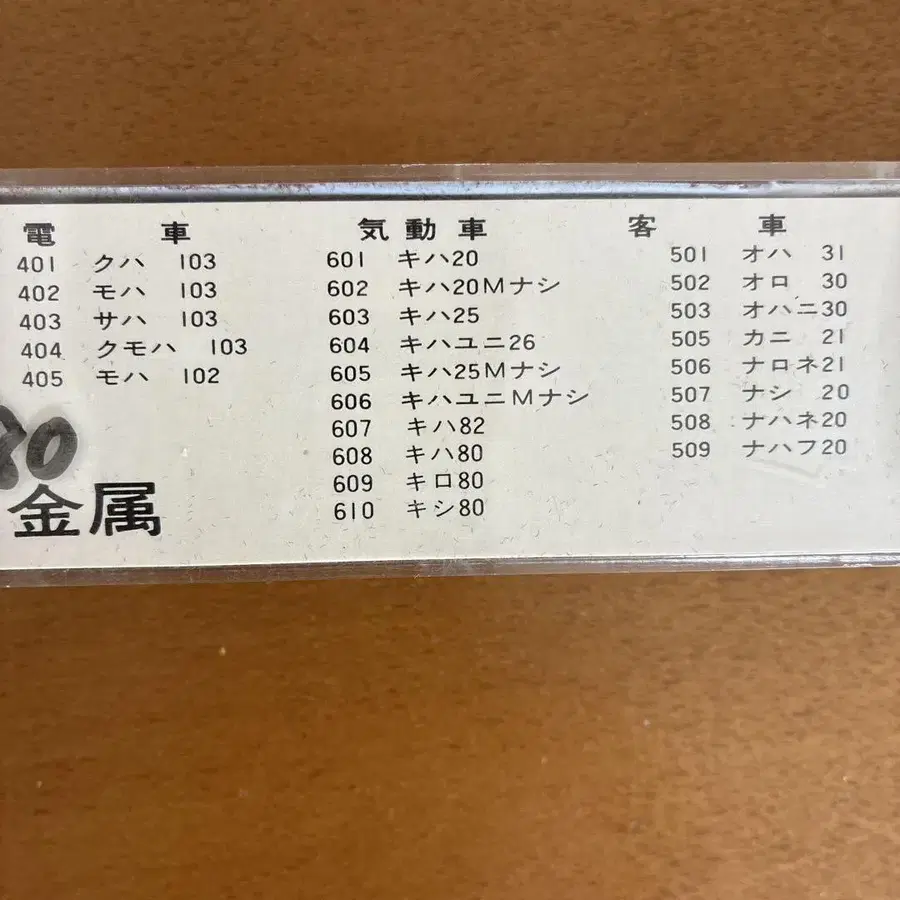 電 車
401 クハ 103
402 モハ 103
403 サハ 103
404 クモハ 103
405 モハ 102
80
金属
気動車
601 キハ20
602 キハ20Mナシ
603 キハ25
604 キハユニ26
605 キハ25Mナシ
606 キハユニMナシ
607 キハ82
608 キハ80
609 キロ80
610 キシ80
客 車
501 オハ 31
502 オロ 30
503 オハニ30
505 カニ 21
506 ナロネ21
507 ナシ 20
508 ナハネ20
509 ナハフ20